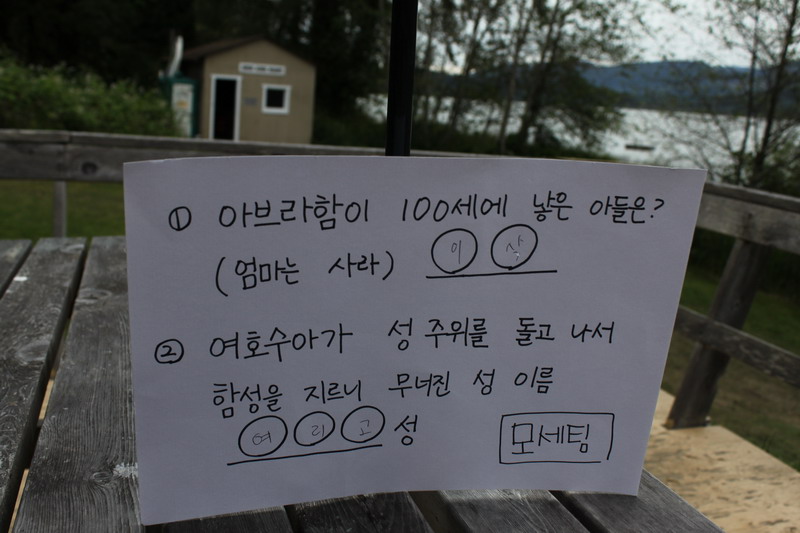 ① 아브라함이 100세에 낳은 아들은?
(엄마는 사라) 이삭
② 여호수아가 성 주위를 돌고 나서
함성을 지르니 무너진 성 이름
여리고 성
모세팀